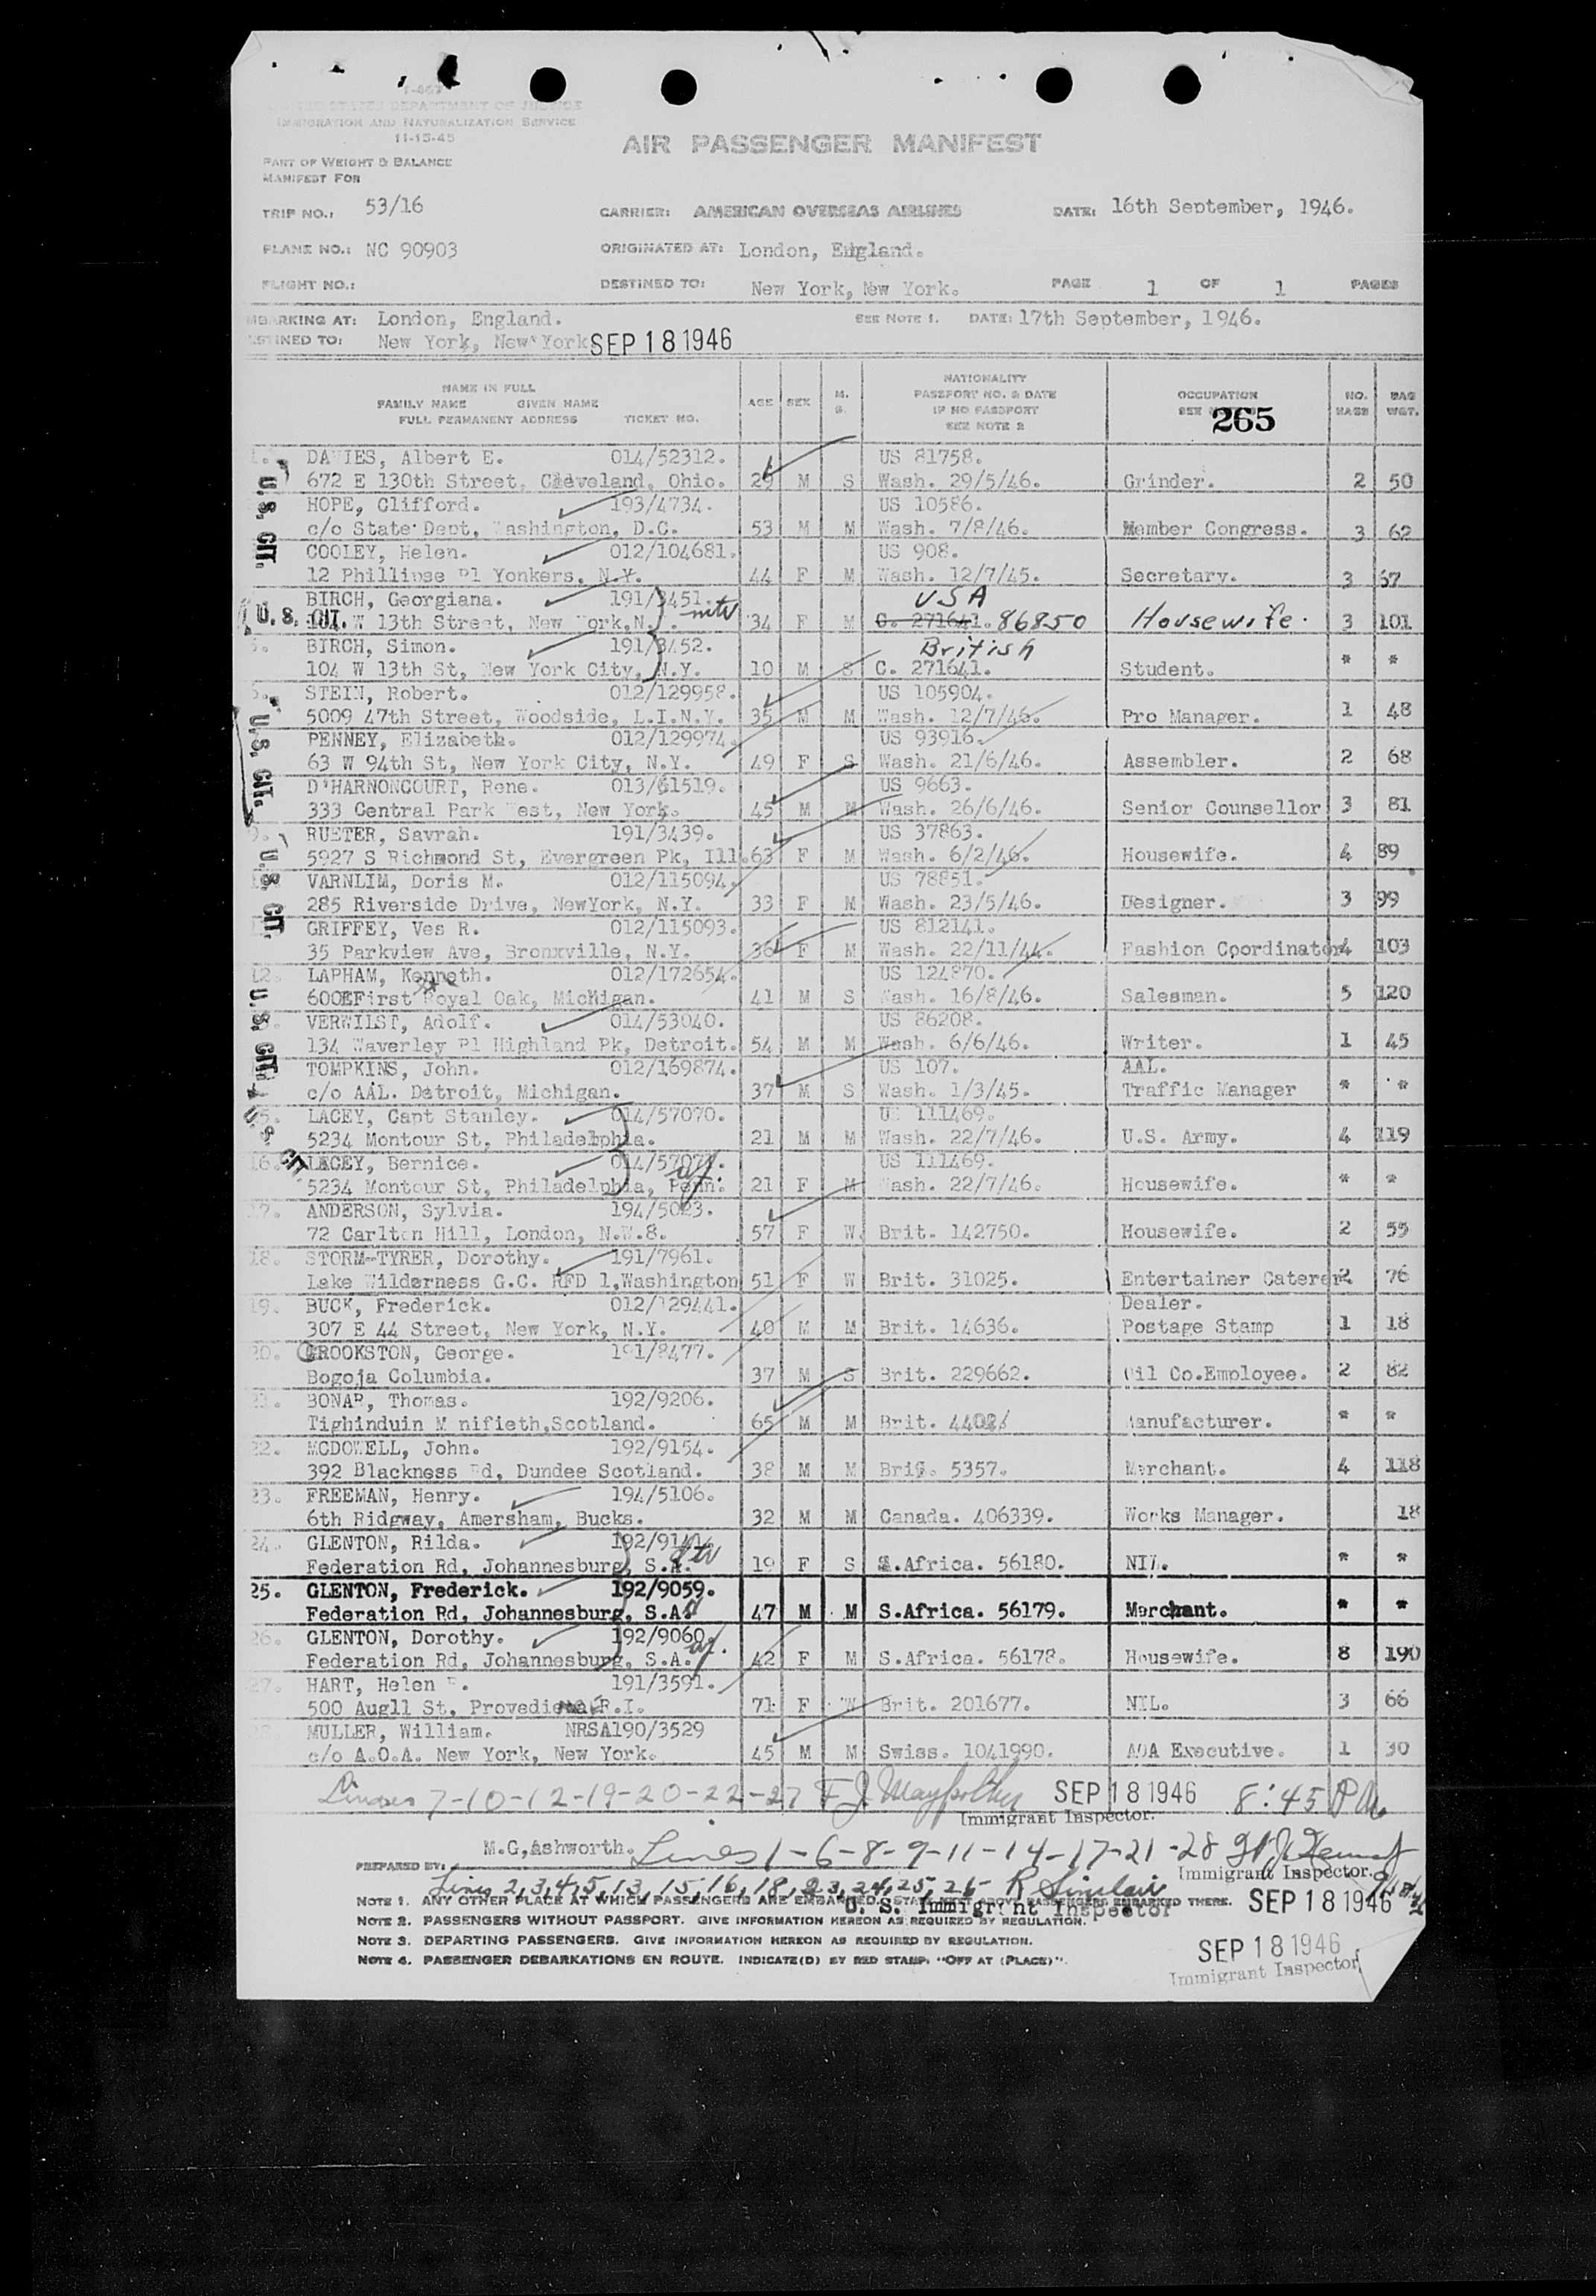 I-467
UNITED STATES DEPARTMENT OF JUSTICE
IMMIGRATION AND NATURALIZATION SERVICE
11-15-45
PART OF WEIGHT & BALANCE
MANIFEST FOR
AIR PASSENGER MANIFEST
TRIP NO.: 53/16 CARRIER: AMERICAN OVERSEAS AIRLINES DATE: 16th September, 1946.
PLANE NO.: NC 90903 ORIGINATED AT: London, England.
FLIGHT NO.: DESTINED TO: New York, New York. PAGE 1 OF 1 PAGES
MBARKING AT: London, England. SEE NOTE 1. DATE: 17th September, 1946.
STINED TO: New York, New York SEP 18 1946
NAME IN FULL
FAMILY NAME GIVEN NAME
FULL PERMANENT ADDRESS TICKET NO.
AGE SEX M. S.
NATIONALITY
PASSPORT NO. & DATE
IF NO PASSPORT
SEE NOTE 2
OCCUPATION
SEE
265
NO. BAGS BAG WGT.
1. DAVIES, Albert E. 014/52312. US 81758.
672 E 130th Street, Cleveland, Ohio. 29 M S Wash. 29/5/46. Grinder. 2 50
U.S. CIT.
HOPE, Clifford. 193/4734. US 10586.
c/o State Dept, Washington, D.C. 53 M M Wash. 7/8/46. Member Congress. 3 62
COOLEY, Helen. 012/104681. US 908.
12 Phillipse Pl Yonkers, N.Y. 44 F M Wash. 12/7/45. Secretary. 3 67
BIRCH, Georgiana. 191/3451. USA
U. S. CIT. 104 W 13th Street, New York, N. 34 F M C. 271641. 86850 Housewife. 3 101
5. BIRCH, Simon. 191/3452. British
104 W 13th St, New York City, N.Y. 10 M S C. 271641. Student. * *
6. STEIN, Robert. 012/129958. US 105904.
5009 47th Street, Woodside, L.I.N.Y. 35 M M Wash. 12/7/46. Pro Manager. 1 48
U.S. CIT.
PENNEY, Elizabeth. 012/129974. US 93916.
63 W 94th St, New York City, N.Y. 49 F S Wash. 21/6/46. Assembler. 2 68
D'HARNONCOURT, Rene. 013/61519. US 9663.
333 Central Park West, New York. 45 M M Wash. 26/6/46. Senior Counsellor 3 81
9. RUETER, Savrah. 191/3439. US 37863.
5927 S Richmond St, Evergreen Pk, Ill. 63 F M Wash. 6/2/46. Housewife. 4 89
U.S. CIT.
VARNLIM, Doris M. 012/115094. US 78851.
285 Riverside Drive, NewYork, N.Y. 33 F M Wash. 23/5/46. Designer. 3 99
GRIFFEY, Ves R. 012/115093. US 812141.
35 Parkview Ave, Bronxville, N.Y. 36 F M Wash. 22/11/44. Fashion Coordinator 4 103
12. LAPHAM, Kenneth. 012/172654. US 124870.
600EFirst Royal Oak, Michigan. 41 M S Wash. 16/8/46. Salesman. 5 120
U.S. CIT.
VERWILST, Adolf. 014/53040. US 86208.
134 Waverley Pl Highland Pk, Detroit. 54 M M Wash. 6/6/46. Writer. 1 45
TOMPKINS, John. 012/169874. US 107. AAL.
c/o AAL. Detroit, Michigan. 37 M S Wash. 1/3/45. Traffic Manager * *
15. LACEY, Capt Stanley. 014/57070. US 111469.
5234 Montour St, Philadelphia. 21 M M Wash. 22/7/46. U.S. Army. 4 119
U. S. CIT.
16. LACEY, Bernice. 014/57071. US 111469.
5234 Montour St, Philadelphia, Penn. 21 F M Wash. 22/7/46. Housewife. * *
17. ANDERSON, Sylvia. 194/5023.
72 Carlton Hill, London, N.W.8. 57 F W Brit. 142750. Housewife. 2 55
18. STORM-TYRER, Dorothy. 191/7961.
Lake Wilderness G.C. RFD 1,Washington 51 F W Brit. 31025. Entertainer Caterer 2 76
19. BUCK, Frederick. 012/129441. Dealer.
307 E 44 Street, New York, N.Y. 40 M M Brit. 14636. Postage Stamp 1 18
20. CROOKSTON, George. 191/8477.
Bogoja Columbia. 37 M S Brit. 229662. Oil Co.Employee. 2 82
21. BONAR, Thomas. 192/9206.
Tighinduin M nifieth,Scotland. 65 M M Brit. 44026 Manufacturer. * *
22. MCDOWELL, John. 192/9154.
392 Blackness Rd, Dundee Scotland. 38 M M Brit. 5357. Merchant. 4 118
23. FREEMAN, Henry. 194/5106.
6th Ridgway, Amersham, Bucks. 32 M M Canada. 406339. Works Manager. 18
24. GLENTON, Rilda. 192/9141.
Federation Rd, Johannesburg, S.A. 19 F S S.Africa. 56180. NIL. * *
25. GLENTON, Frederick. 192/9059.
Federation Rd, Johannesburg, S.A. 47 M M S.Africa. 56179. Merchant. * *
26. GLENTON, Dorothy. 192/9060.
Federation Rd, Johannesburg, S.A. 42 F M S.Africa. 56178. Housewife. 8 190
27. HART, Helen E. 191/3591.
500 Augll St, Provedience R.I. 71 F W Brit. 201677. NIL. 3 66
28. MULLER, William. NRSA190/3529
c/o A.O.A. New York, New York. 45 M M Swiss. 1041990. AOA Executive. 1 30
Lines 7-10-12-19-20-22-27 SEP 18 1946 8:45 PM
Immigrant Inspector.
PREPARED BY: M.G,Ashworth. Lines 1-6-8-9-11-14-17-21-28
Immigrant Inspector.
Lines 2,3,4,5,13,15,16,18,23,24,25,26- R Sinclair
NOTE 1. ANY OTHER PLACE AT WHICH PASSENGERS ARE EMBARKED, STATE ABOVE PASSENGERS EMBARKED THERE. SEP 18 1946
U. S. Immigrant Inspector
NOTE 2. PASSENGERS WITHOUT PASSPORT. GIVE INFORMATION HEREON AS REQUIRED BY REGULATION.
NOTE 3. DEPARTING PASSENGERS. GIVE INFORMATION HEREON AS REQUIRED BY REGULATION.
NOTE 4. PASSENGER DEBARKATIONS EN ROUTE. INDICATE(D) BY RED STAMP: "OFF AT (PLACE)".
SEP 18 1946
Immigrant Inspector